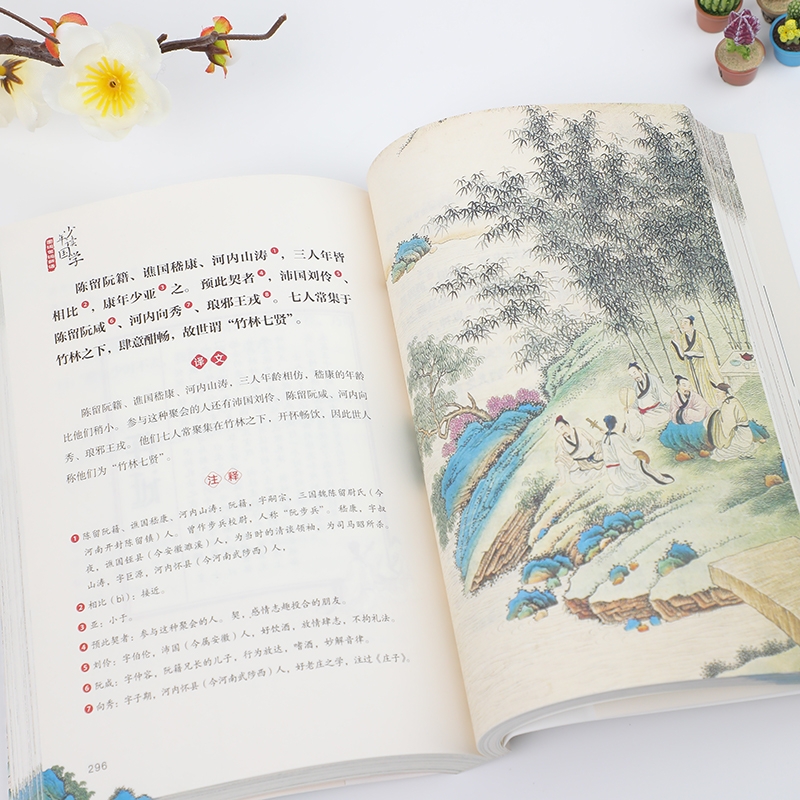 少年读国学
陈留阮籍、谯国嵇康、河内山涛❶，三人年皆
相比❷，康年少亚❸之。预此契者❹，沛国刘伶❺、
陈留阮咸❻、河内向秀❼、琅邪王戎❽。七人常集于
竹林之下，肆意酣畅，故世谓“竹林七贤”。
译文
陈留阮籍、谯国嵇康、河内山涛，三人年龄相仿，嵇康的年龄
比他们稍小。参与这种聚会的人还有沛国刘伶、陈留阮咸、河内向
秀、琅邪王戎。他们七人常聚集在竹林之下，开怀畅饮，因此世人
称他们为“竹林七贤”。
注释
❶ 陈留阮籍、谯国嵇康、河内山涛：阮籍，字嗣宗，三国魏陈留尉氏（今
河南开封陈留镇）人。曾作步兵校尉，人称“阮步兵”。嵇康，字叔
夜，谯国铚县（今安徽濉溪）人，为当时的清谈领袖，为司马昭所杀。
山涛，字巨源，河内怀县（今河南武陟西）人，
❷ 相比（bì）：接近。
❸ 亚：小于。
❹ 预此契者：参与这种聚会的人。契，感情志趣投合的朋友。
❺ 刘伶：字伯伦，沛国（今属安徽）人，好饮酒，放情肆志，不拘礼法。
❻ 阮咸：字仲容，阮籍兄长的儿子，行为放达，嗜酒，妙解音律。
❼ 向秀：字子期，河内怀县（今河南武陟西）人，好老庄之学，注过《庄子》。
296